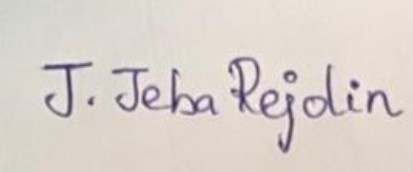 J. Jeba Rejolin